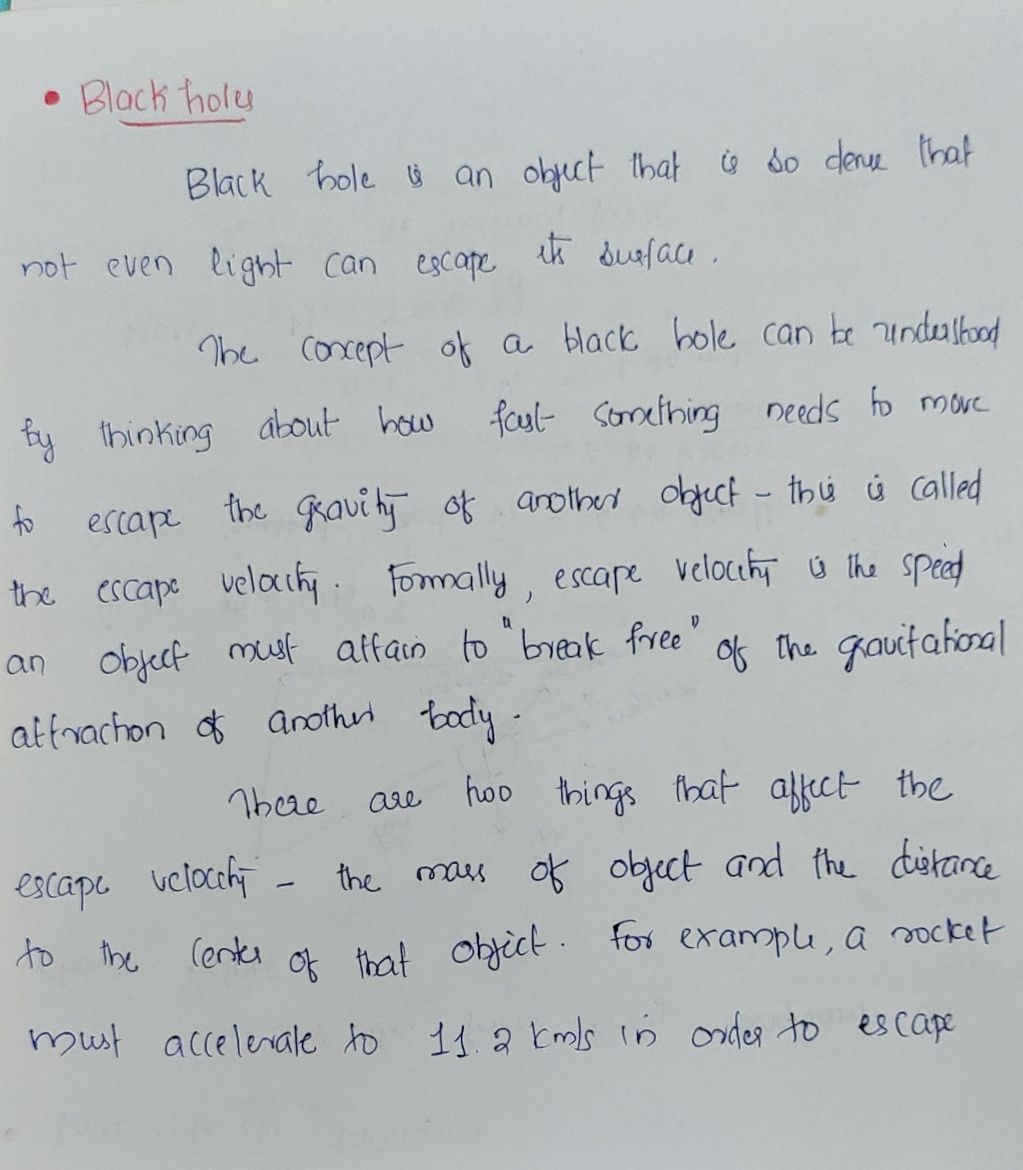 • Black holes
Black hole is an object that is so dense that
not even light can escape its surface.
The concept of a black hole can be understood
by thinking about how fast something needs to move
to escape the gravity of another object - this is called
the escape velocity. Formally, escape velocity is the speed
an object must attain to "break free" of the gravitational
attraction of another body.
There are two things that affect the
escape velocity - the mass of object and the distance
to the center of that object. For example, a rocket
must accelerate to 11.2 km/s in order to escape